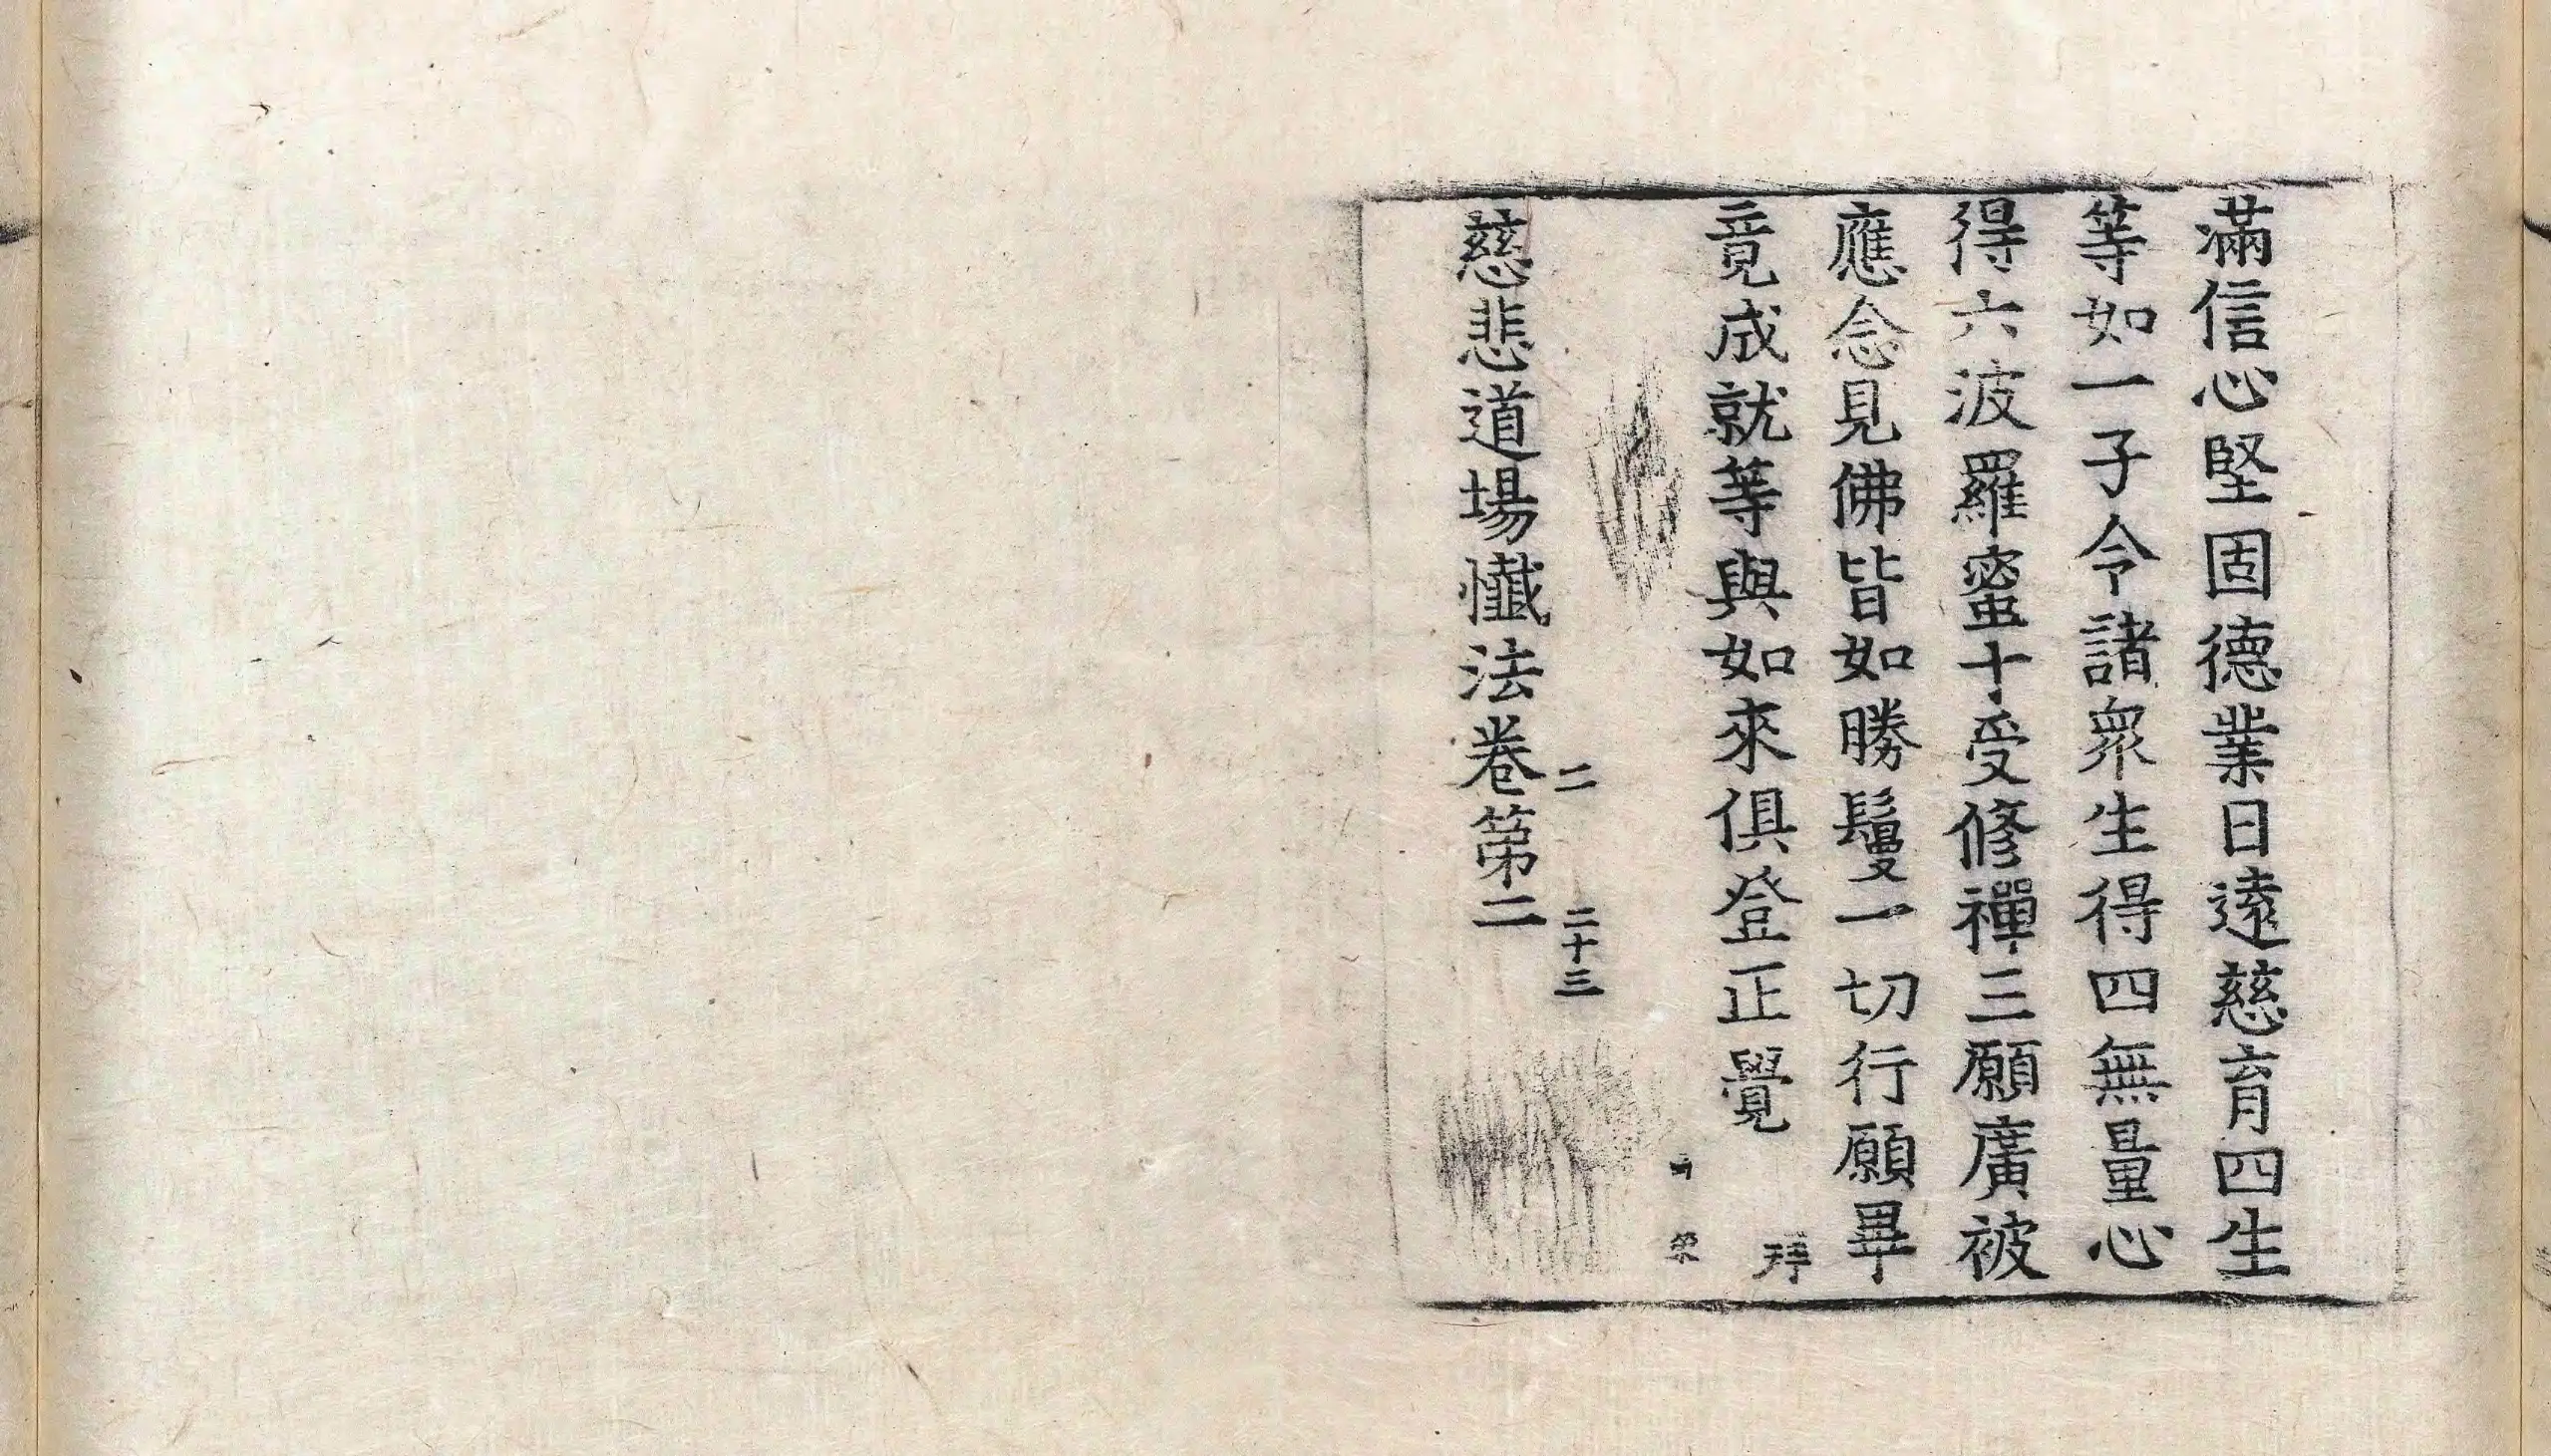 滿信心堅固德業日遠慈育四生
等如一子令諸衆生得四無量心
得六波羅蜜十受修禪三願廣被
應念見佛皆如勝鬘一切行願畢
竟成就等與如來俱登正覺
拜
二 二十三
慈悲道場懺法卷第二